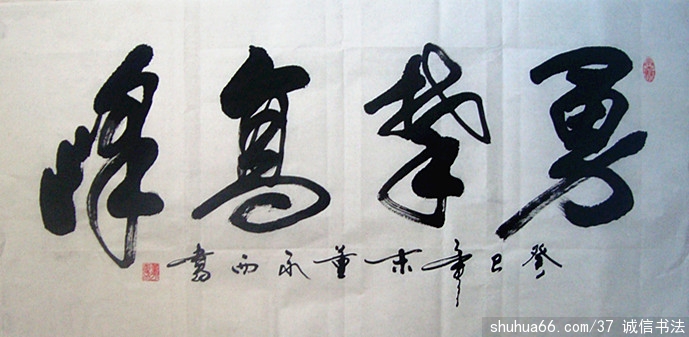 勇攀高峰
癸巳年末董永西書
shuhua66.com/37 诚信书法